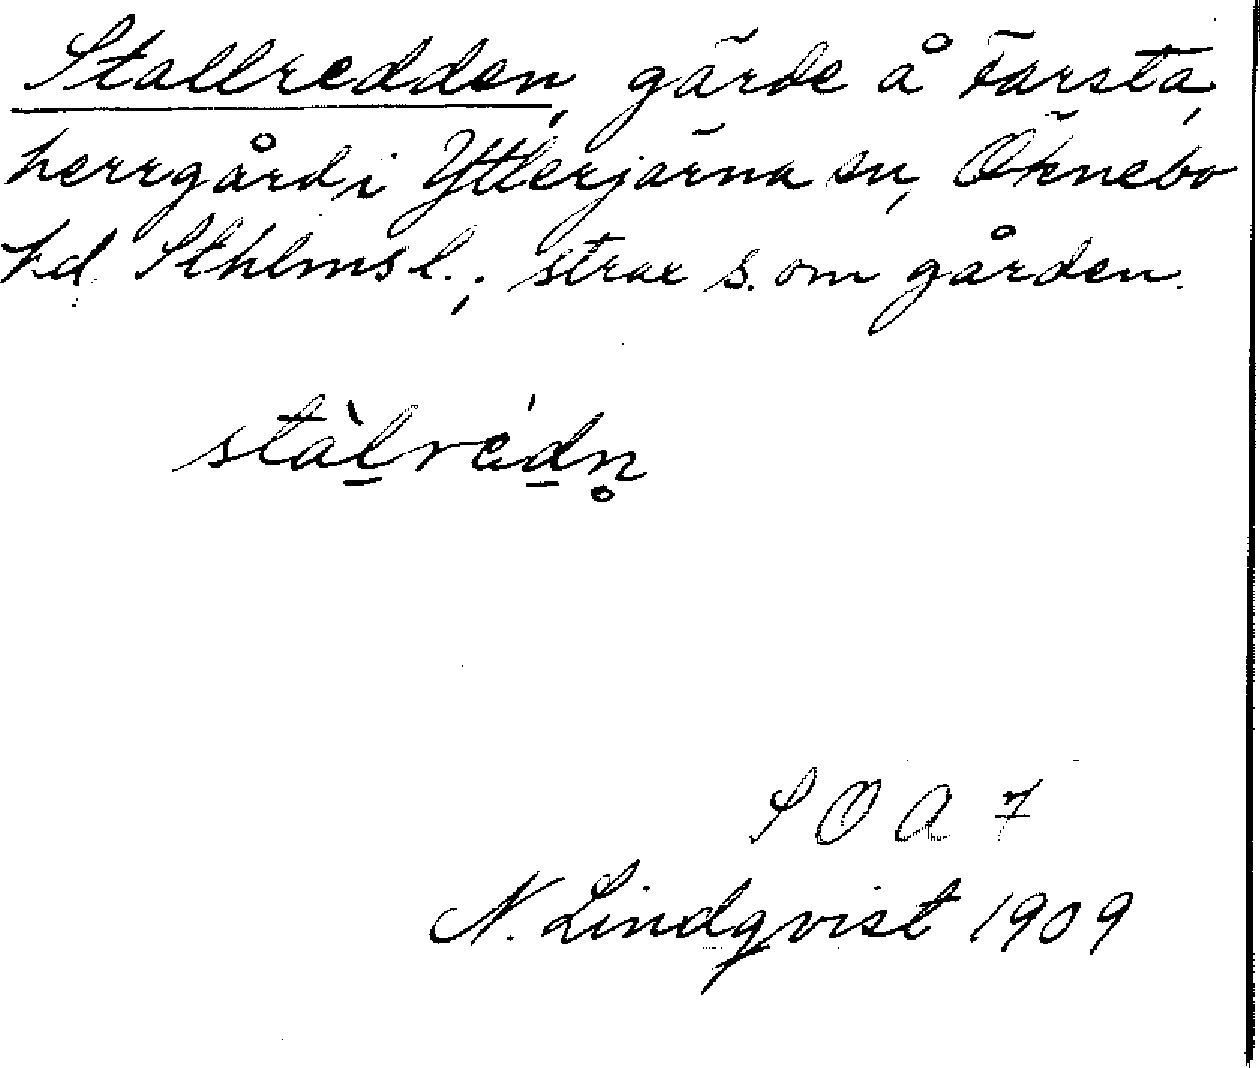 Stallredden, gärde å Tärsta,
herrgård i Ytterjärna sn, Öknebo
hd Sthlms l.; strax s. om gården.
stàlrédn̥
S O A 7
N. Lindqvist 1909